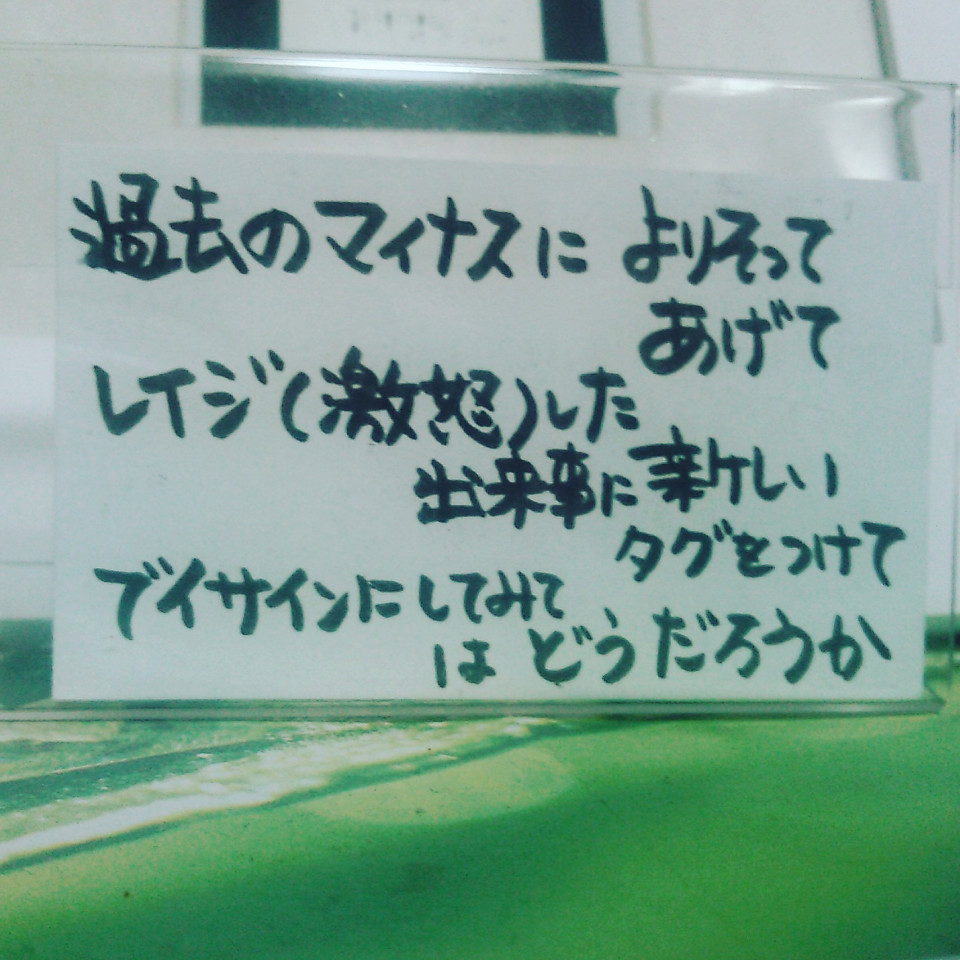 過去のマイナスに よりそって
あげて
レイジ(激怒)した
出来事に新しい
タグをつけて
ブイサインにしてみて
は どうだろうか